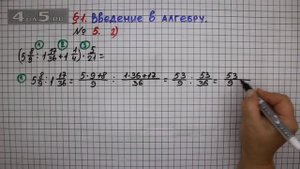 4АРБ
§1. Введение в алгебру.
№ 5. 2)
① ② ③
(5 8/9 : 1 17/36 + 1 1/4) · 5/21 =
① 5 8/9 : 1 17/36 = (5·9+8)/9 : (1·36+17)/36 = 53/9 : 53/36 = 53/9